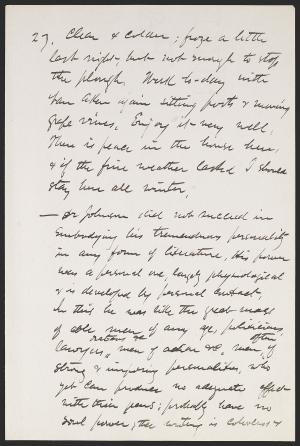 27. Clear & colder; froze a little
last night, but not enough to stop
the plough. Work to-day with
Van Aken again sitting posts & moving
grape vines. Enjoy it very well.
There is peace in the house here,
& if the fine weather lasted I should
stay here all winter.
— Dr Johnson did not succeed in
embodying his tremendous personality
in any form of literature. His power
was a personal one, largely physiological
& is developed by personal contact.
In this he was like the great mass
of able men of any age, physicians, often
lawyers, orators & men of action &c, men of
strong & inspiring personalities, who
yet can produce no adequate effect
with their pens; probably have no
soul power; the writing is colorless &